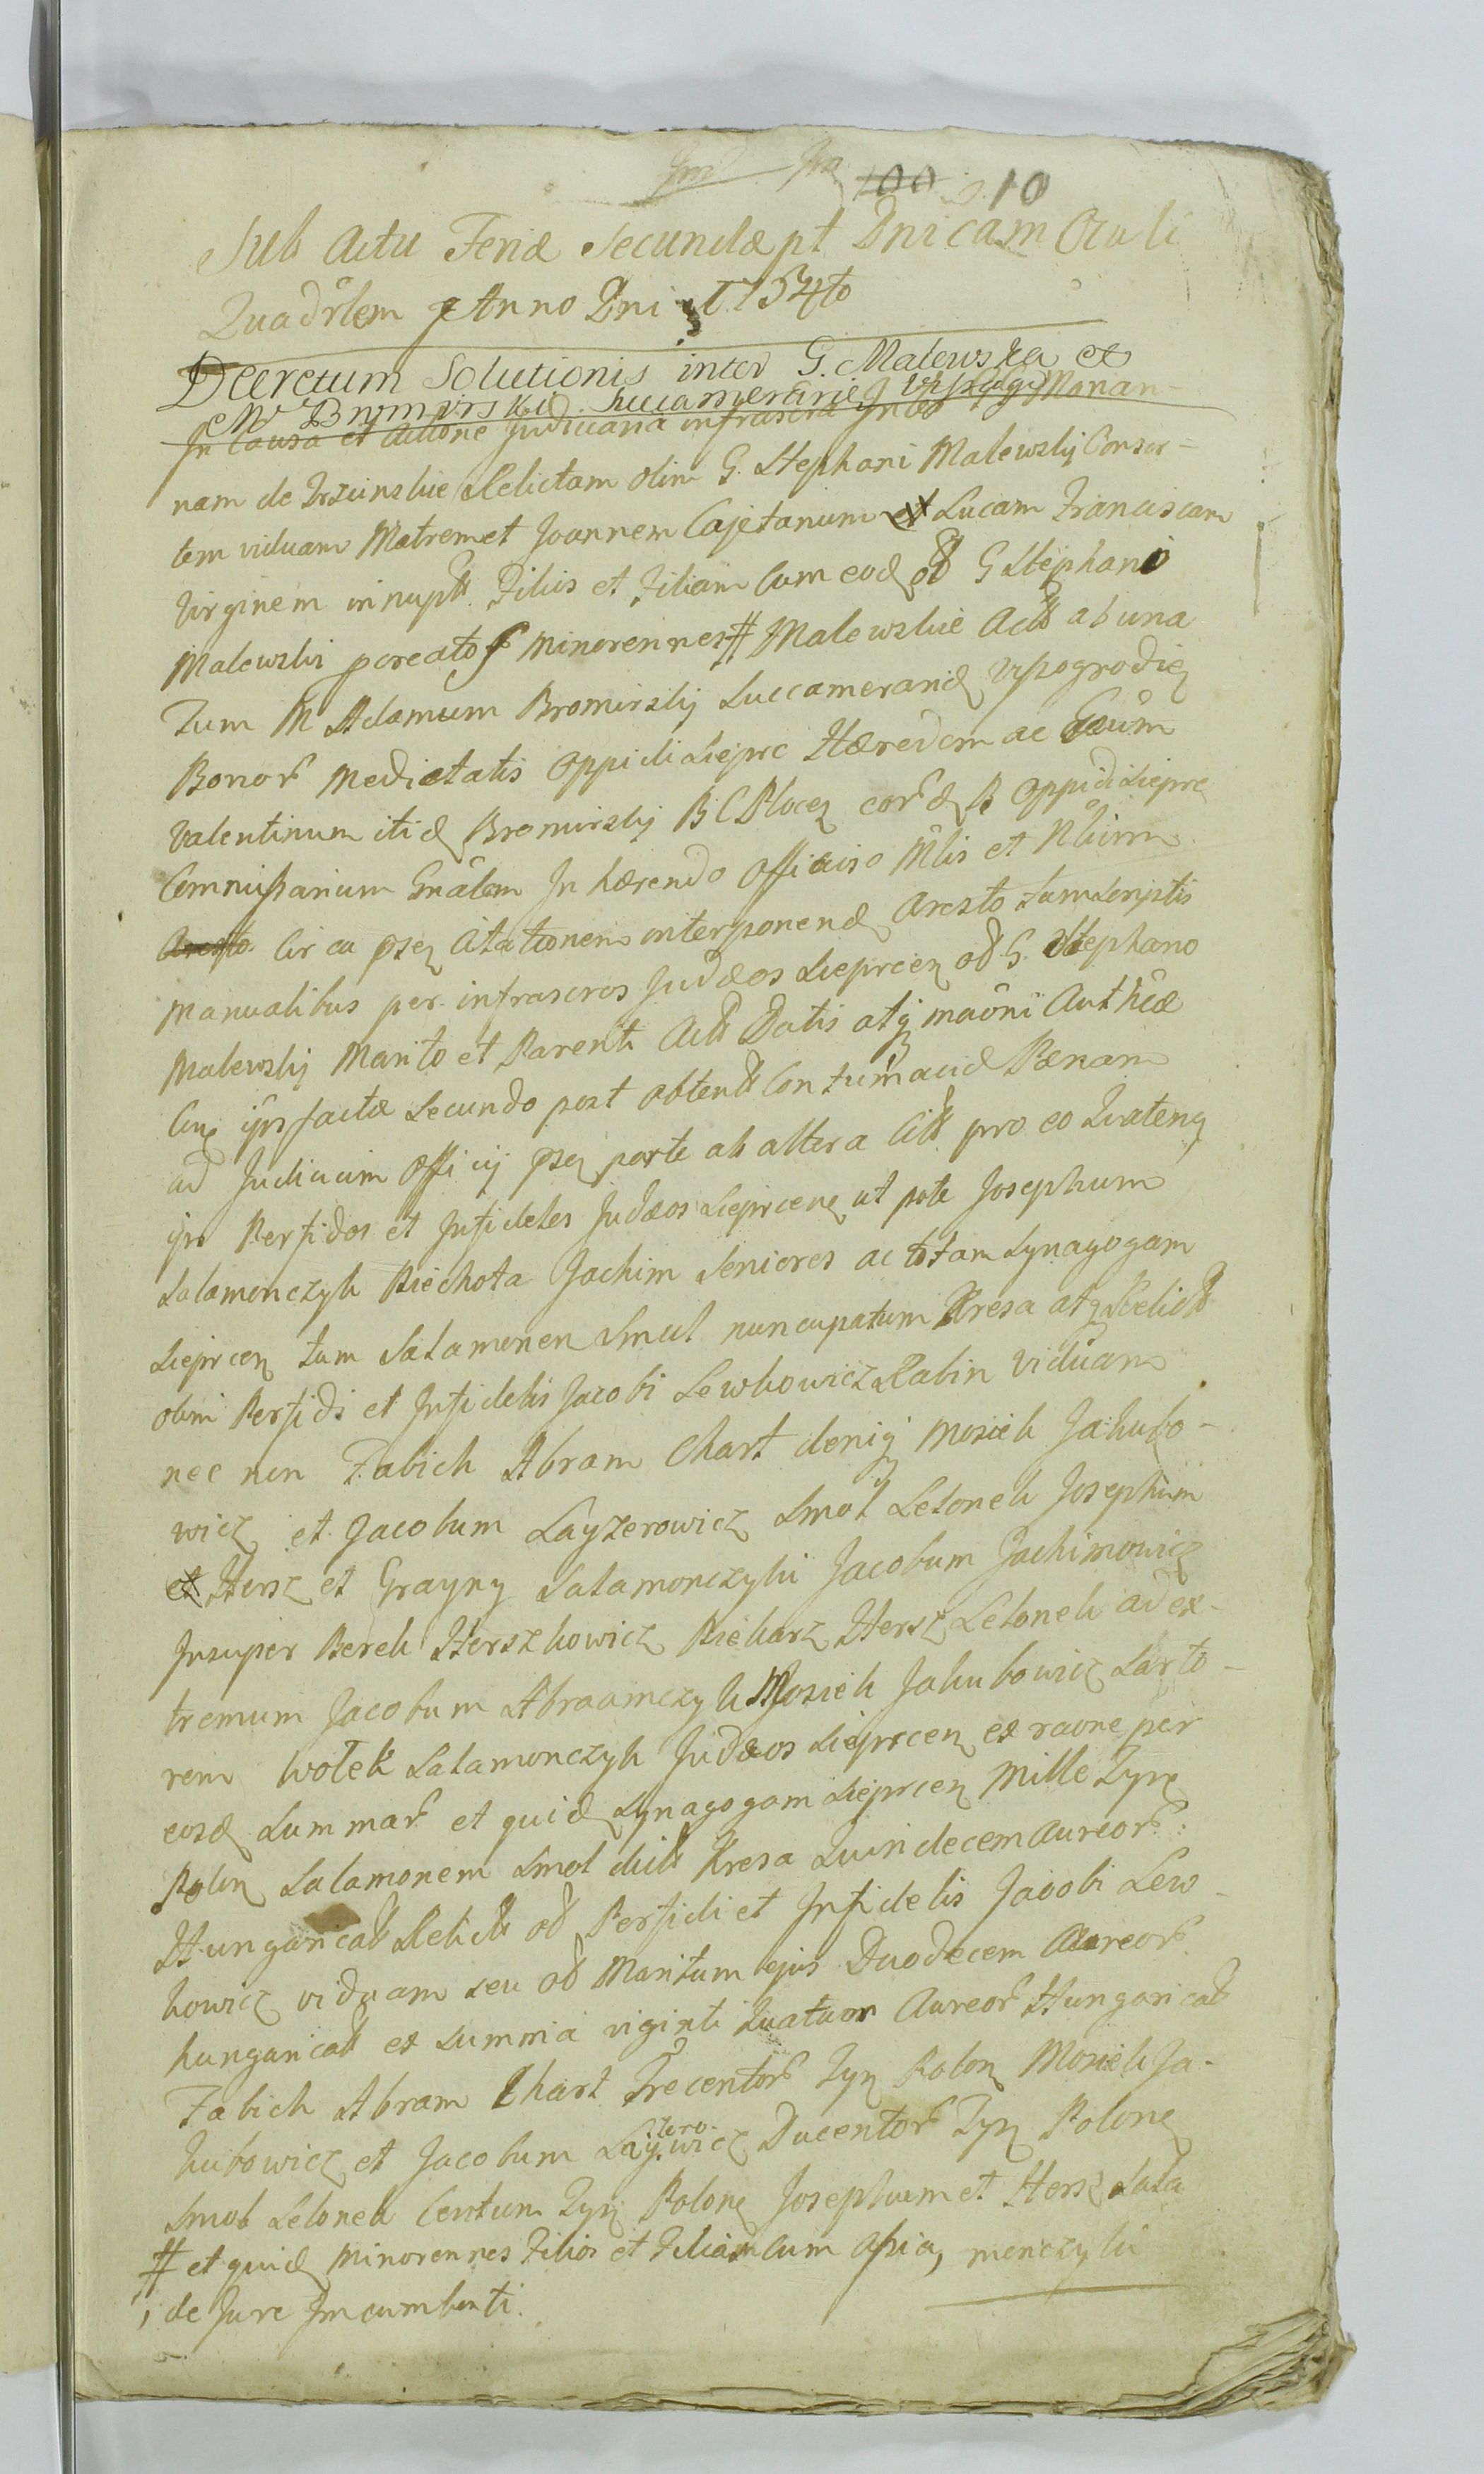 100 10
Sub Actu Feriæ Secundæ pt Dnicam Oculi
Quadrlem Anno Dni 1754to
Decretum Solutionis inter G. Malewska et
M Bromirski Succamerarie Vyssogr
In Causa et Actione Judiciaria infrascra Inter G Marian-
nam de Relictam olim G. Stephani Malewskij Consor=
tem viduam Matrem et Joannem Cajetanum et Lucam Franciscam
Virginem innupt Filios et Filiam cum eod od G Stephano
Malewski pcreatos minorennes # Malewskie Act ab una
Tum M Adamum Bromirskij Succamerarid Vysogrodien
Bonor Medietatis Oppidi Sieprc Hæredem ac Gsum
Valentinum itid Bromirskij B C Plocen eord B Oppidi Sieprc
Commissarium Gnalem In hærendo Officioso Mlis et Nbium
Aresto Circa psen Citationem interponend Aresto tum Scriptis
Manualibus per infrascros Judæos Sieprcen od G. Stephano
Malewskij Marito et Parenti Act Datis atq maôni Authcæ
Cuq ipis factæ Secundo post obtent Contumacid Pænam
ad Judicium Officij psen parte ab altera Citt pro eo Quateng
ipi Perfidos et Infideles Judæos Sieprcens ut pote Josephum
Salamonczyk Piechota Jachim Seniores ac totam Synagogam
Sieprcen tum Salamonen Smul nuncupatum Kresa atq Relict
olim Perfidi et Infidelis Jacobi Lewkowicz Rabin viduam
nec non Fabich Abram Chart deniq Mosiek Jakubo-
wicz et Jacobum Layzerowicz Smol Letonek Josephum
et Hersz et Grayny Salamonczyki Jacobum Jachimowicz
Insuper Berek Herszkowicz Piekarz Hersz Letonek ad ex-
tremum Jacobum Abraamczyk Mosiek Jakubowicz Sarto-
rem Wołek Salamonczyk Judæos Sieprcen ex raone per
eosd Summar et quid Synagogam Sieprcen Mille Tyn
Polon Salamonem Smol dict Kresa Quindecem Aureor:
Hungaricat Relict od Perfidi et Infidelis Jacobi Lew-
kowicz viduam seu od Maritum ejus Duodecem Aureor
hungaricat ex Summa viginti Quatuor Aureor Hungaricat
Fabich Abram Chart Trecentor Tyn Polon Mosiek Ja-
kubowicz et Jacobum Layzerowicz Ducentor Tyn Polone
Smol Letonek Centum Tyn Polone Josephum et Hersz Sala
monczyki
# et quid Minorennes Filios et Filiam cum Assia,
, de Jure Incumbenti.